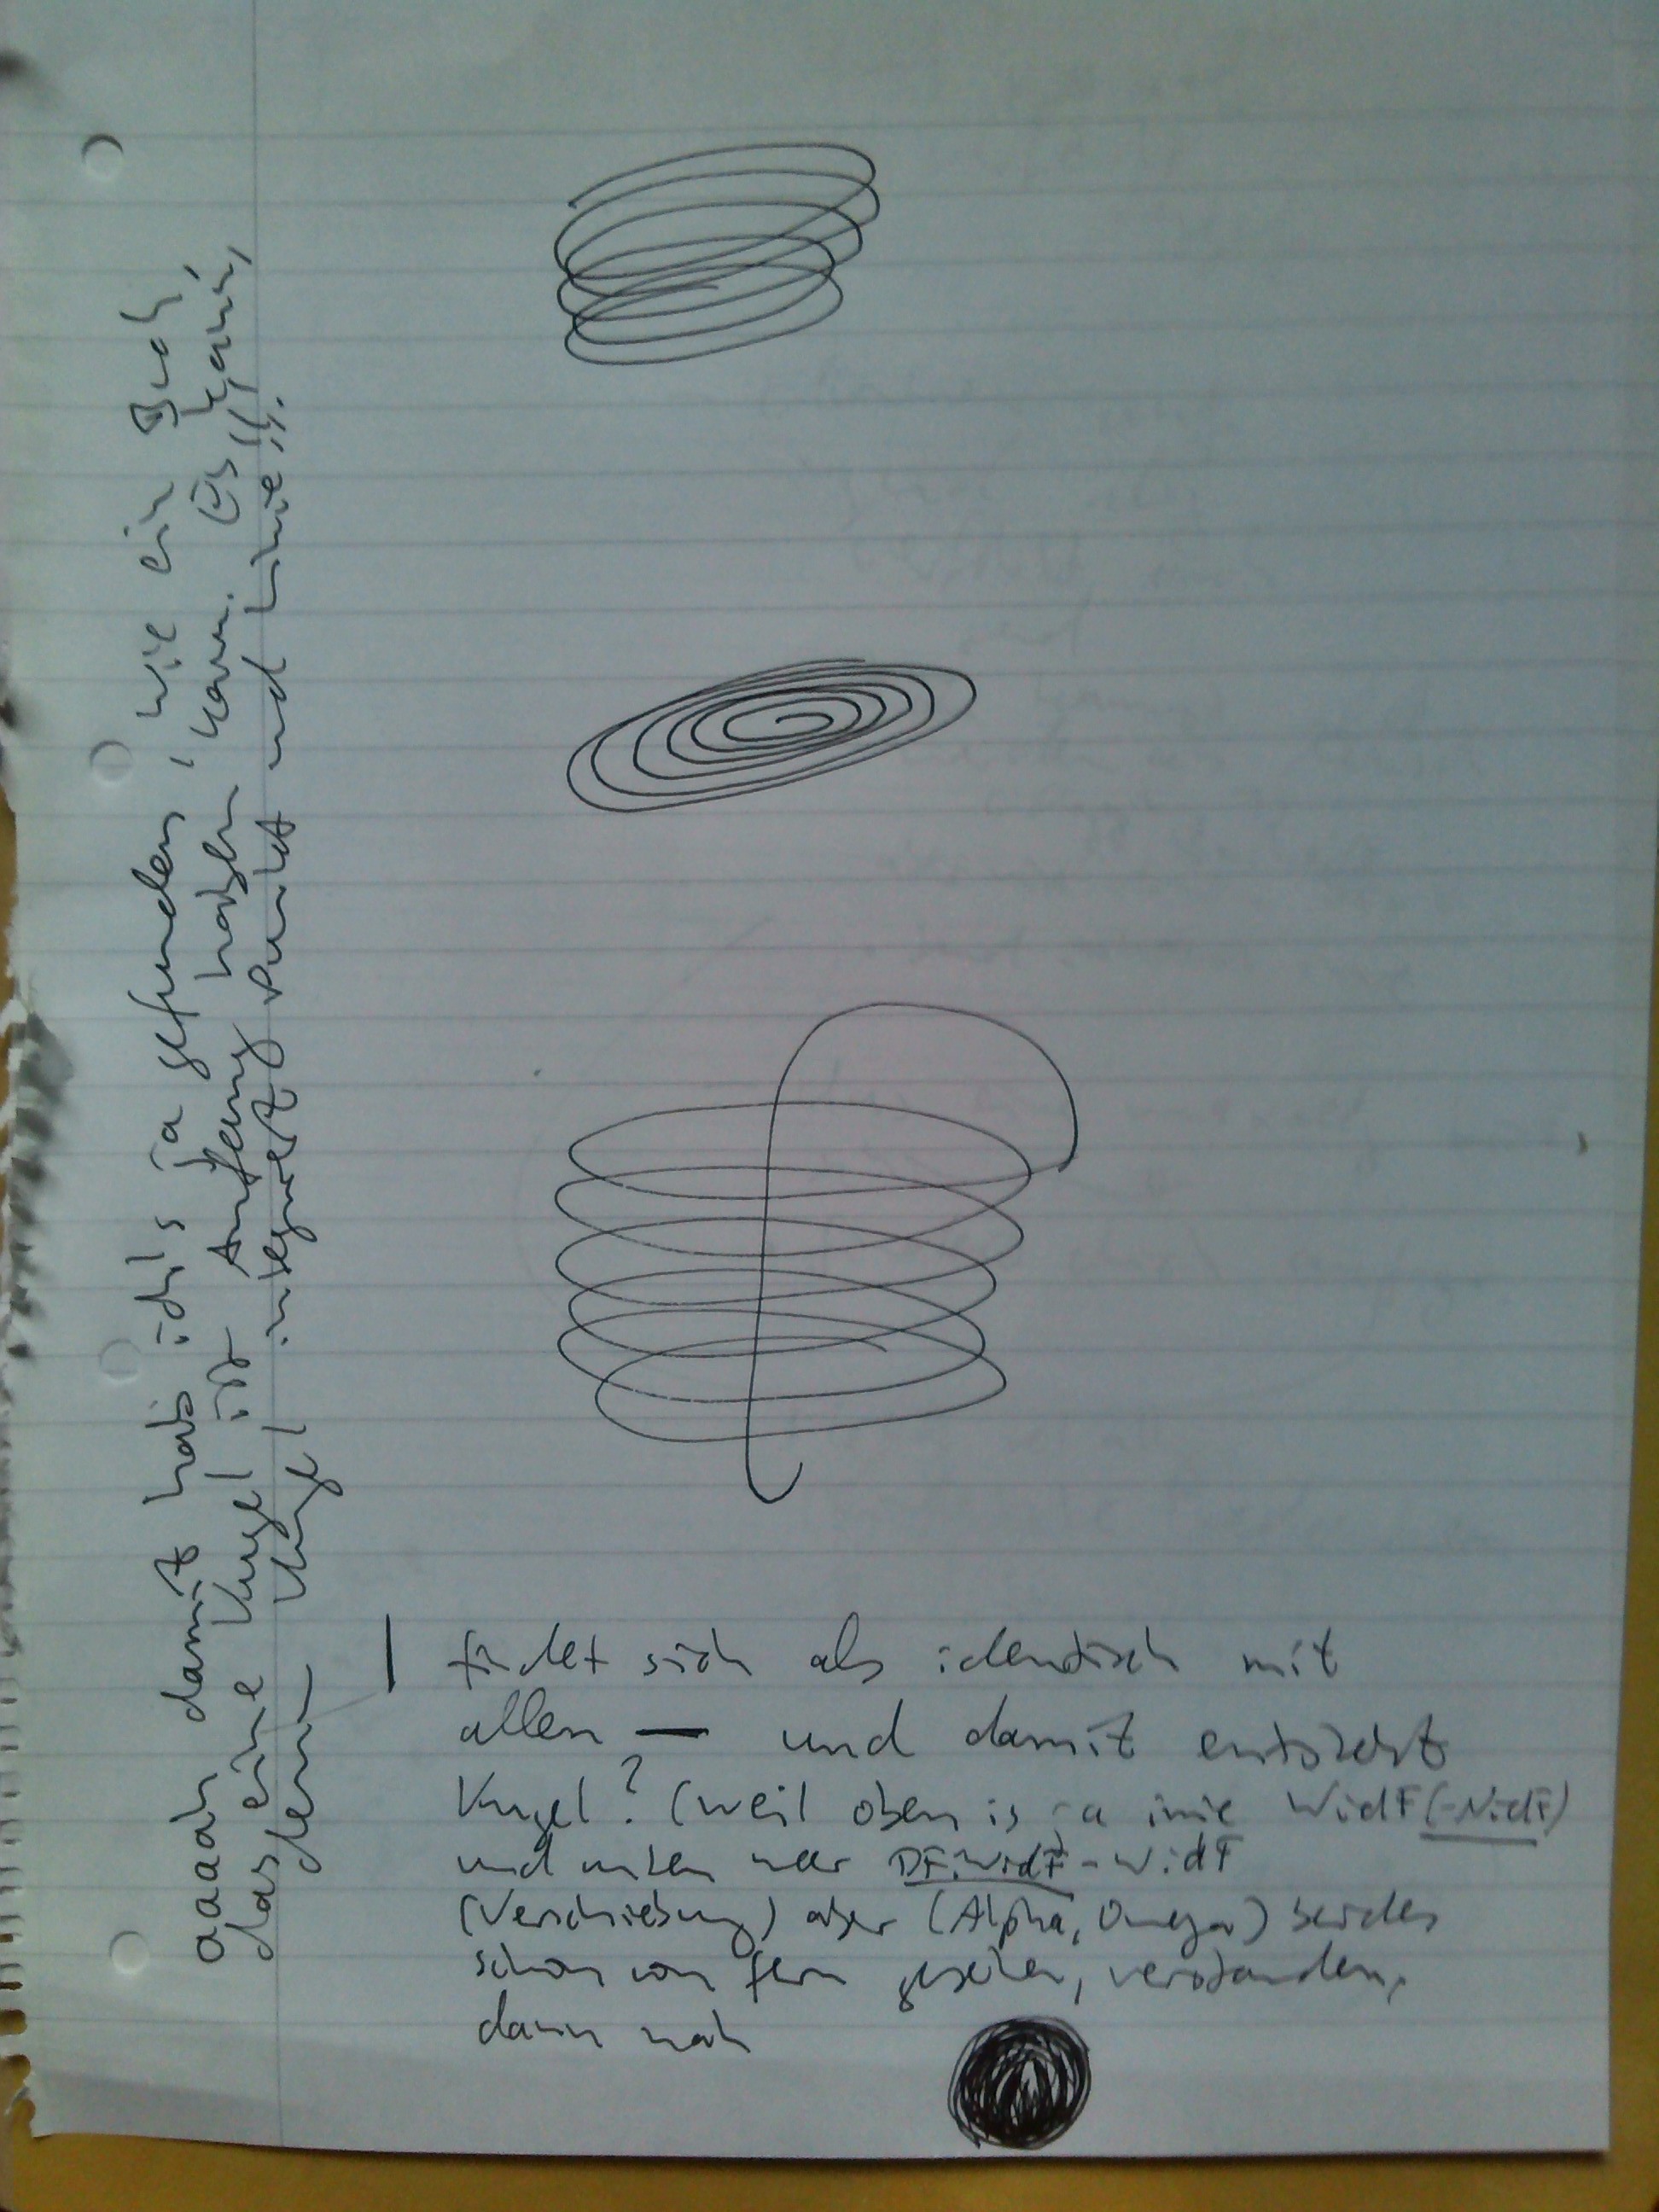 findet sich als identisch mit
allen — und damit entsteht
Kugel? (weil oben is ja wie WidF (-NidF)
und unten war DF:WidF-WidF
(Verschiebung) aber (Alpha, Omega) beides
schon von fern gesehen, verstanden,
dann nah
aaaah damit hab ich's ja gefunden, wie ein Buch,
das eine Kugel ist Anfang haben kann. Es kann,
denn Kugel integriert Punkt und Linie!!.